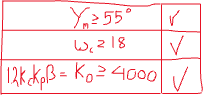 γm ≥ 55° ✓
ωc ≥ 18 ✓
1,2KcKpβ = K0 ≥ 4000 ✓